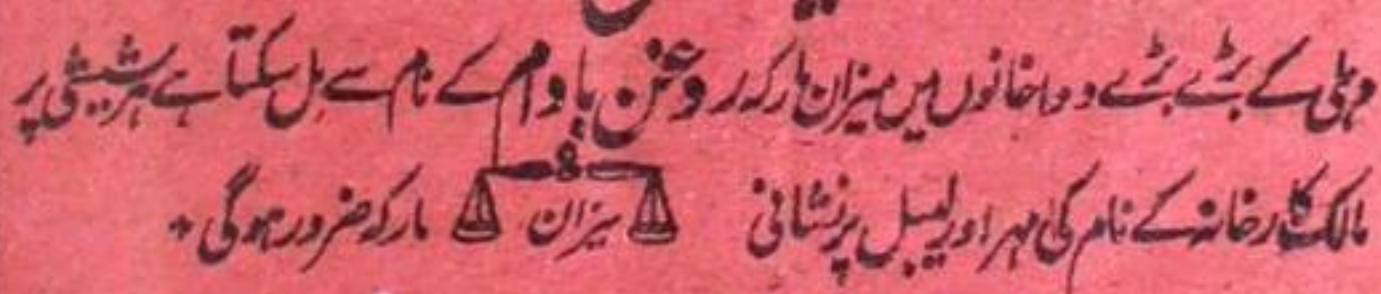 دہلی کے بڑے بڑے دواخانوں میں میزان مارکہ روغن بادام کے نام سے مل سکتا ہے ہر شیشی پر
مالک کارخانہ کے نام کی مہر اور لیبل پر نشانی میزان مارکہ ضرور ہوگی *